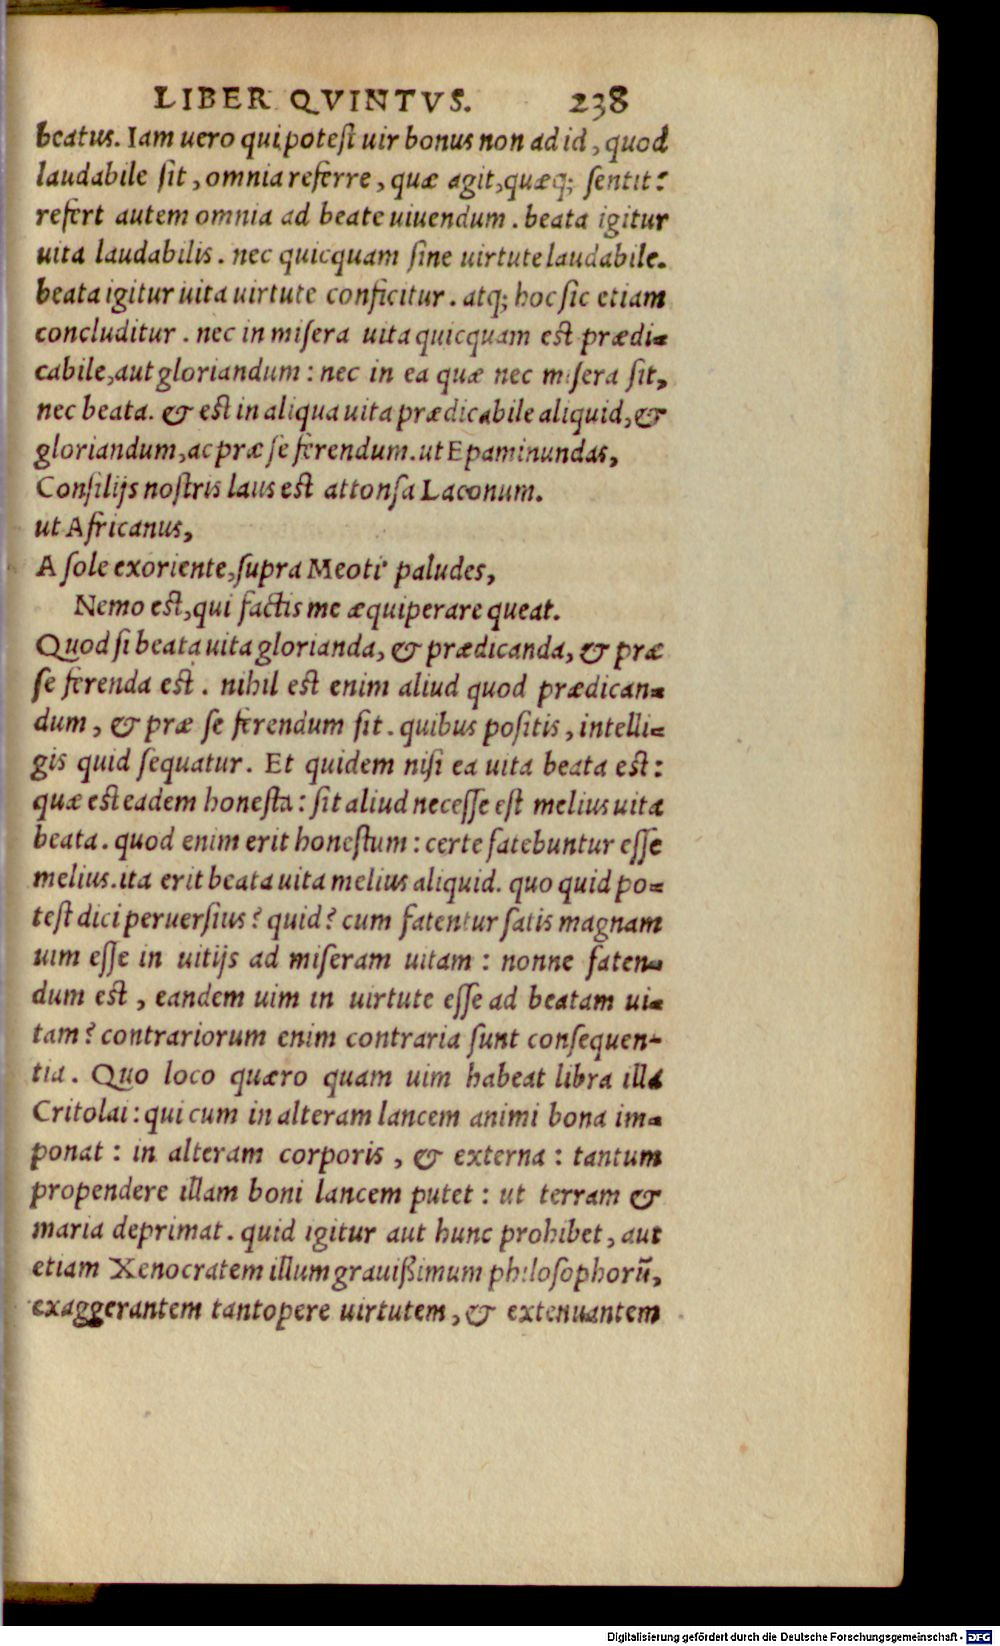 LIBER QVINTVS. 238
beatus. Iam uero qui potest uir bonus non ad id, quod
laudabile sit, omnia referre, quæ agit, quæq; sentit?
refert autem omnia ad beate uiuendum. beata igitur
uita laudabilis. nec quicquam sine uirtute laudabile.
beata igitur uita uirtute conficitur. atq; hoc sic etiam
concluditur. nec in misera uita quicquam est prædi-
cabile, aut gloriandum: nec in ea quæ nec misera sit,
nec beata. & est in aliqua uita prædicabile aliquid, &
gloriandum, ac præ se ferendum. ut Epaminundas,
Consilijs nostris laus est attonsa Laconum.
ut Africanus,
A sole exoriente, supra Meoti' paludes,
Nemo est, qui factis me æquiperare queat.
Quod si beata uita glorianda, & prædicanda, & præ
se ferenda est. nihil est enim aliud quod prædican-
dum, & præ se ferendum sit. quibus positis, intelli-
gis quid sequatur. Et quidem nisi ea uita beata est:
quæ est eadem honesta: sit aliud necesse est melius uita
beata. quod enim erit honestum: certe fatebuntur esse
melius. ita erit beata uita melius aliquid. quo quid po-
test dici peruersius? quid? cum fatentur satis magnam
uim esse in uitijs ad miseram uitam: nonne faten-
dum est, eandem uim in uirtute esse ad beatam ui-
tam? contrariorum enim contraria sunt consequen-
tia. Quo loco quæro quam uim habeat libra illa
Critolai: qui cum in alteram lancem animi bona im-
ponat: in alteram corporis, & externa: tantum
propendere illam boni lancem putet: ut terram &
maria deprimat. quid igitur aut hunc prohibet, aut
etiam Xenocratem illum grauißimum philosophorũ,
exaggerantem tantopere uirtutem, & extenuantem
Digitalisierung gefördert durch die Deutsche Forschungsgemeinschaft - DFG